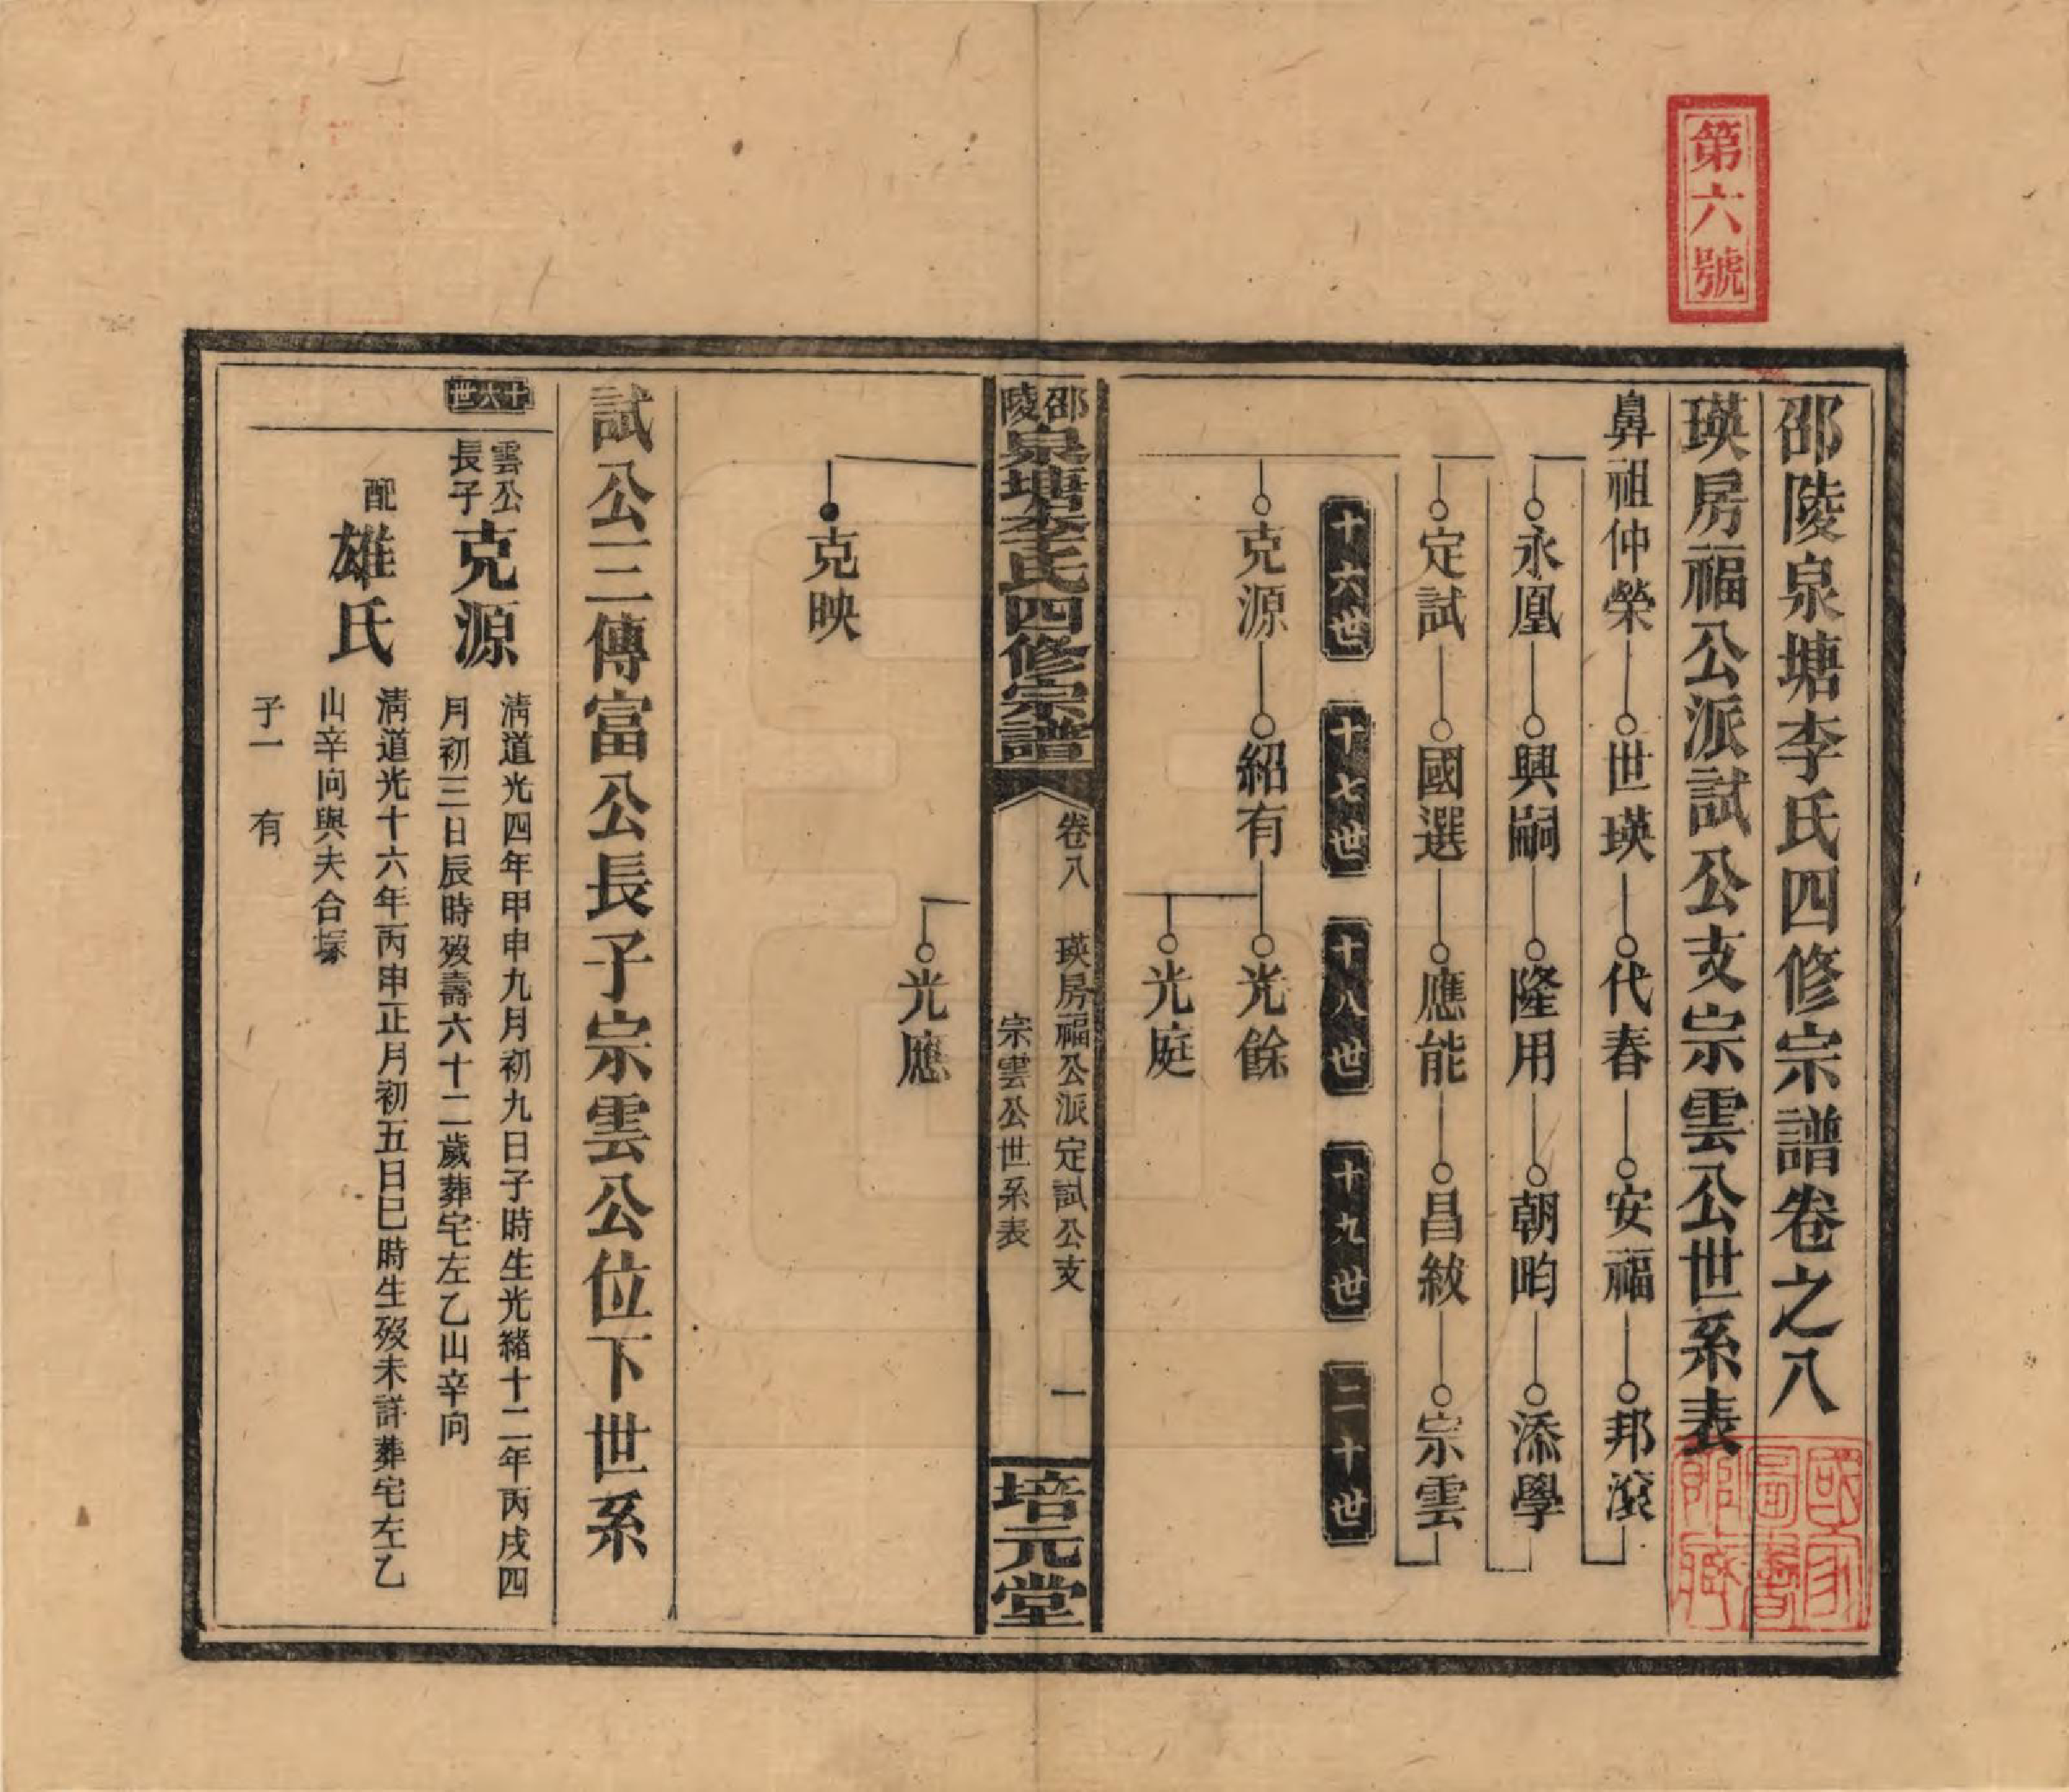 第六號
邵陵泉塘李氏四修宗譜卷之八
瑛房福公派試公支宗雲公世系表
鼻祖仲榮 世瑛 代春 安福 邦滾
永凰 興嗣 隆用 朝畇 添學
定試 國選 應能 昌紱 宗雲
十六世 十七世 十八世 十九世 二十世
克源 紹有 光餘
光庭
邵陵泉塘李氏四修宗譜
卷八 瑛房福公派定試公支
宗雲公世系表
一
培元堂
光應
克映
試公三傳富公長子宗雲公位下世系
十六世
雲公長子 克源
淸道光四年甲申九月初九日子時生光緒十二年丙戌四
月初三日辰時歿壽六十二歲葬宅左乙山辛向
配 雄氏
淸道光十六年丙申正月初五日巳時生歿未詳葬宅左乙
山辛向與夫合塚
子一 有
國家圖書館藏